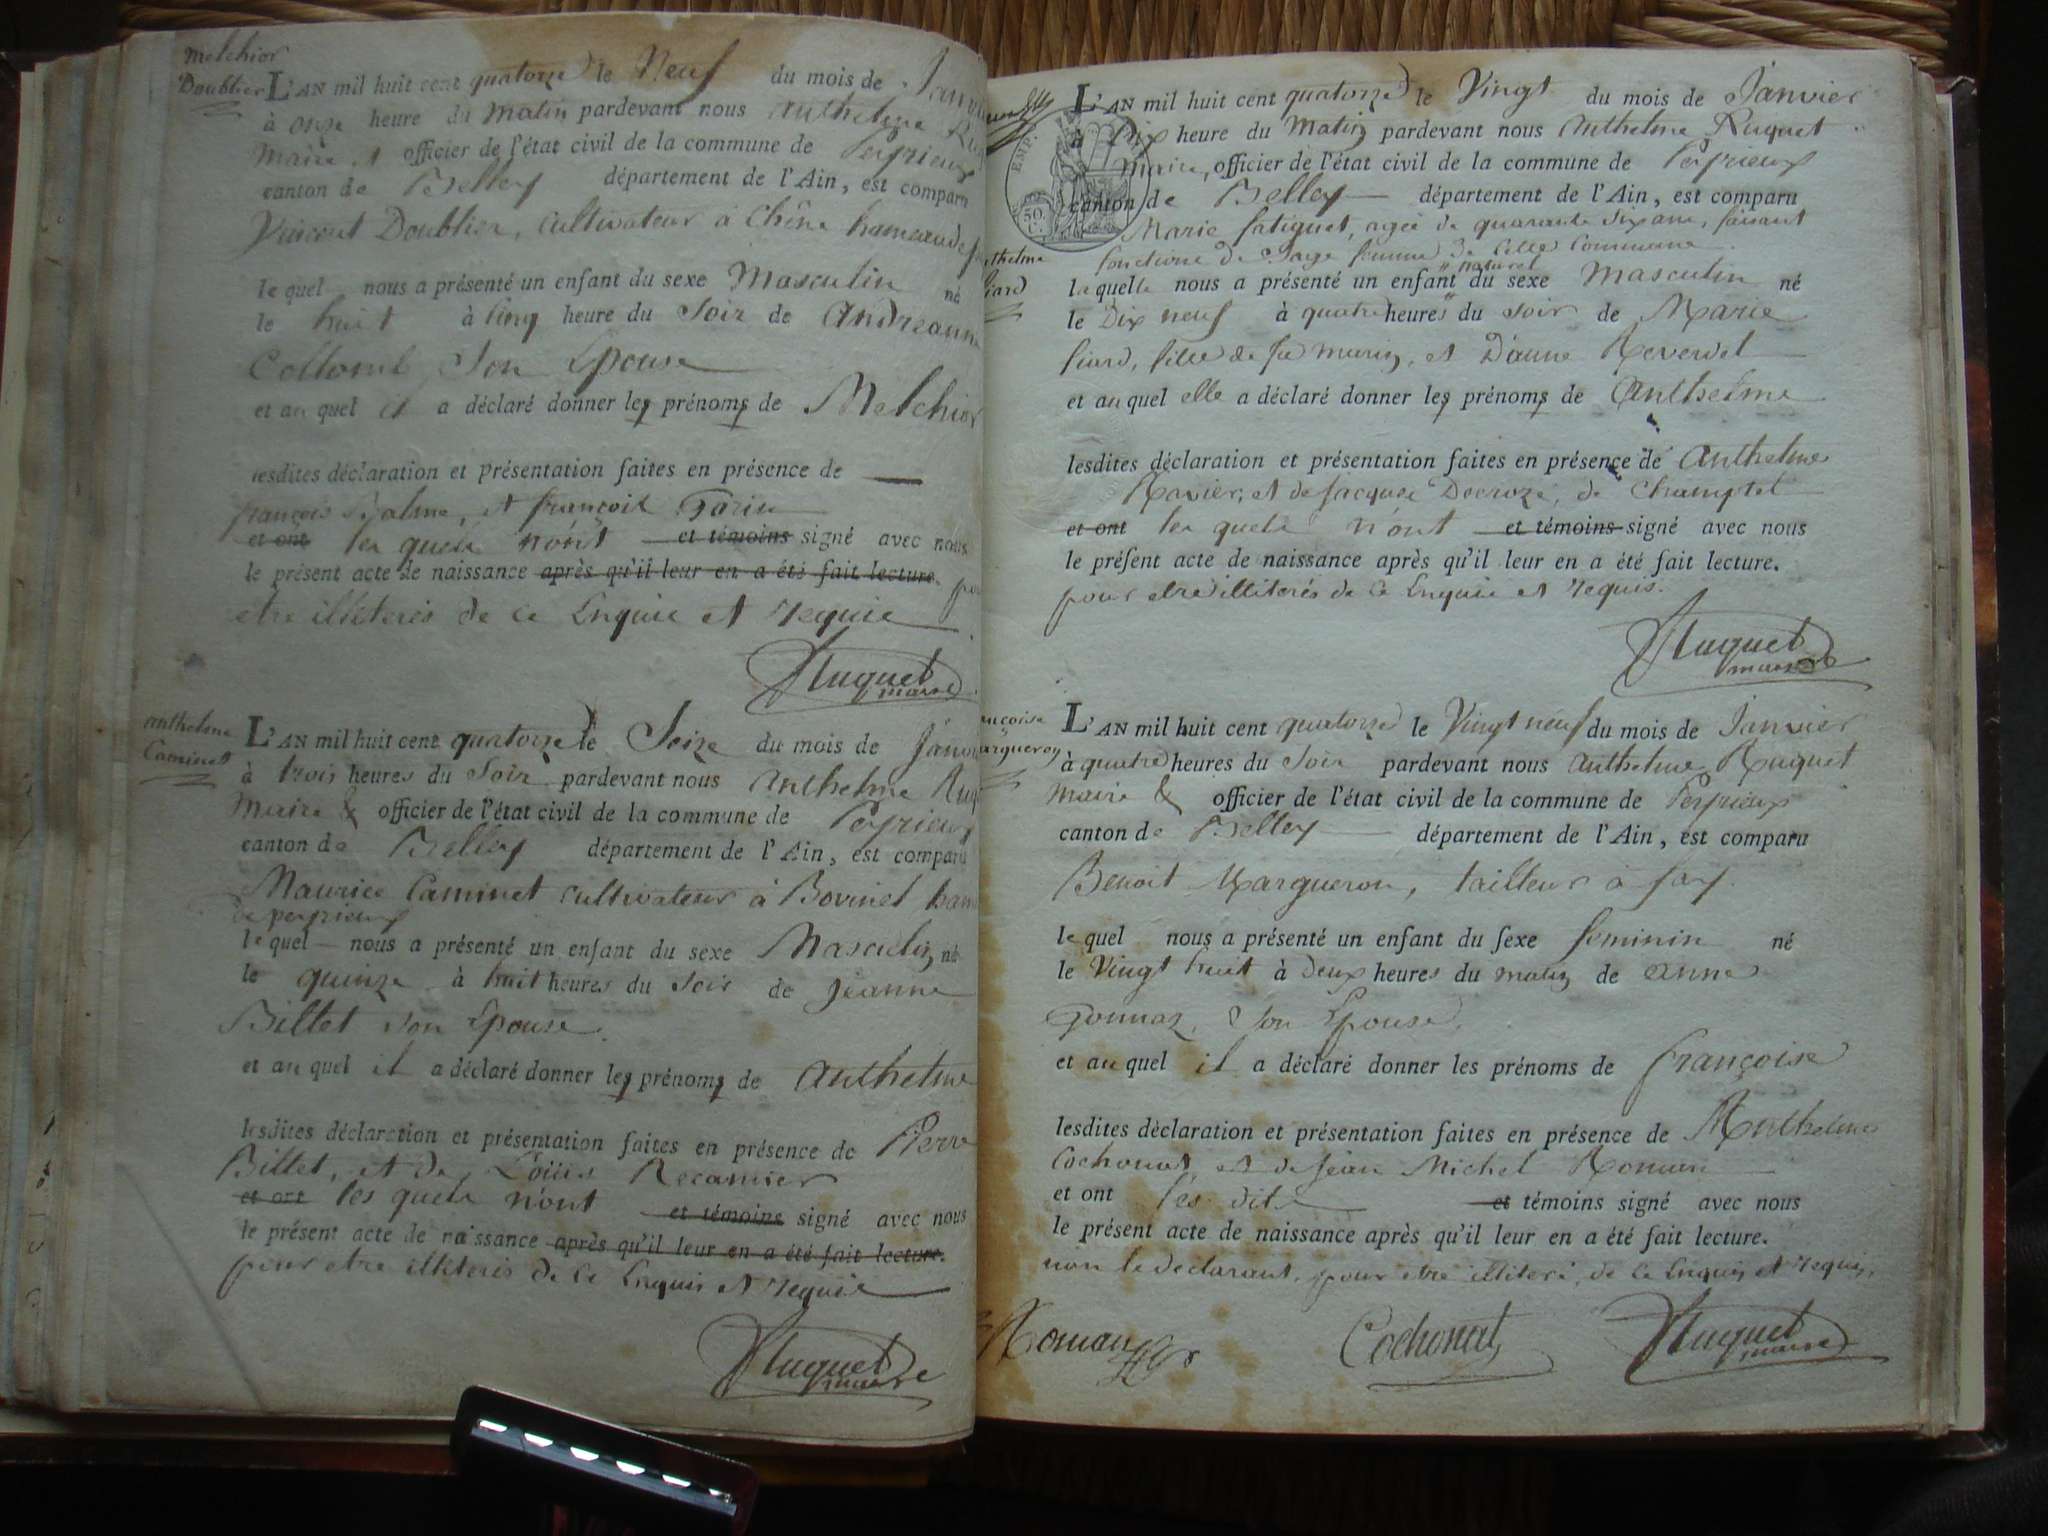 Melchior
Doublier
L'AN mil huit cent quatorze le Neuf du mois de Janvi
à onze heure du Matin pardevant nous Anthelme Ru
Maire et officier de l'état civil de la commune de Peyrieux
canton de Belley département de l'Ain, est comparu
Vincent Doublier, cultivateur à Chêne hameau de
le quel nous a présenté un enfant du sexe Masculin né
le huit à Cinq heure du Soir de Andreanne
Collomb Son Epouse
et au quel il a déclaré donner les prénoms de Melchior
lesdites déclaration et présentation faites en présence de
françois et françois Parin
et ont les quels n'ont et témoins signé avec nous
le présent acte de naissance après qu'il leur en a été fait lecture. po
etre illiterés de ce Enquis et requis
Ruquet
maire
anthelme
Caminet
L'AN mil huit cent quatorze le Seize du mois de Janvi
à trois heures du Soir pardevant nous Anthelme Ruq
Maire & officier de l'état civil de la commune de Peyrieux
canton de Belley département de l'Ain, est comparu
Maurice Caminet cultivateur à Bovinel ham
de peyrieux
le quel nous a présenté un enfant du sexe Masculin né
le quinze à huit heures du Soir de Jeanne
Billet son Epouse.
et au quel il a déclaré donner les prénoms de Anthelme
lesdites déclaration et présentation faites en présence de Pierre
Billet, et de Louis Recamier
et ont les quels n'ont et témoins signé avec nous
le présent acte de naissance après qu'il leur en a été fait lecture.
pour etre illiterés de ce Enquis et requis
Ruquet
maire
EMP.
50
C.
anthelme
fiard
L'AN mil huit cent quatorze le Vingt du mois de Janvier
à Dix heure du Matin pardevant nous Anthelme Ruquet
Maire, officier de l'état civil de la commune de Peyrieux
canton de Belley département de l'Ain, est comparu
Marie fatiguet, agée de quarante six ans, faisant
fonctions de Sage femme de Celle Commune
naturel
la quelle nous a présenté un enfant du sexe Masculin né
le Dix neuf à quatre heures du soir de Marie
fiard, fille de feu Marin, et D'anne Reverdet
et au quel elle a déclaré donner les prénoms de Anthelme
lesdites déclaration et présentation faites en présence de Anthelme
Ravier, et de Jacques Decroze, de Champtel
et ont les quels n'ont et témoins signé avec nous
le présent acte de naissance après qu'il leur en a été fait lecture.
pour etre illiterés de ce Enquis et requis.
Ruquet
maire
ançoise
argueron
L'AN mil huit cent quatorze le Vingt neuf du mois de Janvier
à quatre heures du Soir pardevant nous Anthelme Ruquet
Maire & officier de l'état civil de la commune de Peyrieux
canton de Belley département de l'Ain, est comparu
Benoit Margueron, tailleur à fay.
le quel nous a présenté un enfant du sexe feminin né
le Vingt huit à Deux heures du matin de anne
Gonnaz, Son Epouse.
et au quel il a déclaré donner les prénoms de françoise
lesdites déclaration et présentation faites en présence de Anthelme
Cochonat, et de Jean Michel Roman
et ont les dits et témoins signé avec nous
le présent acte de naissance après qu'il leur en a été fait lecture.
non le declarant, pour etre illiteré, de ce Enquis et requis.
Roman
Cochonat
Ruquet
maire